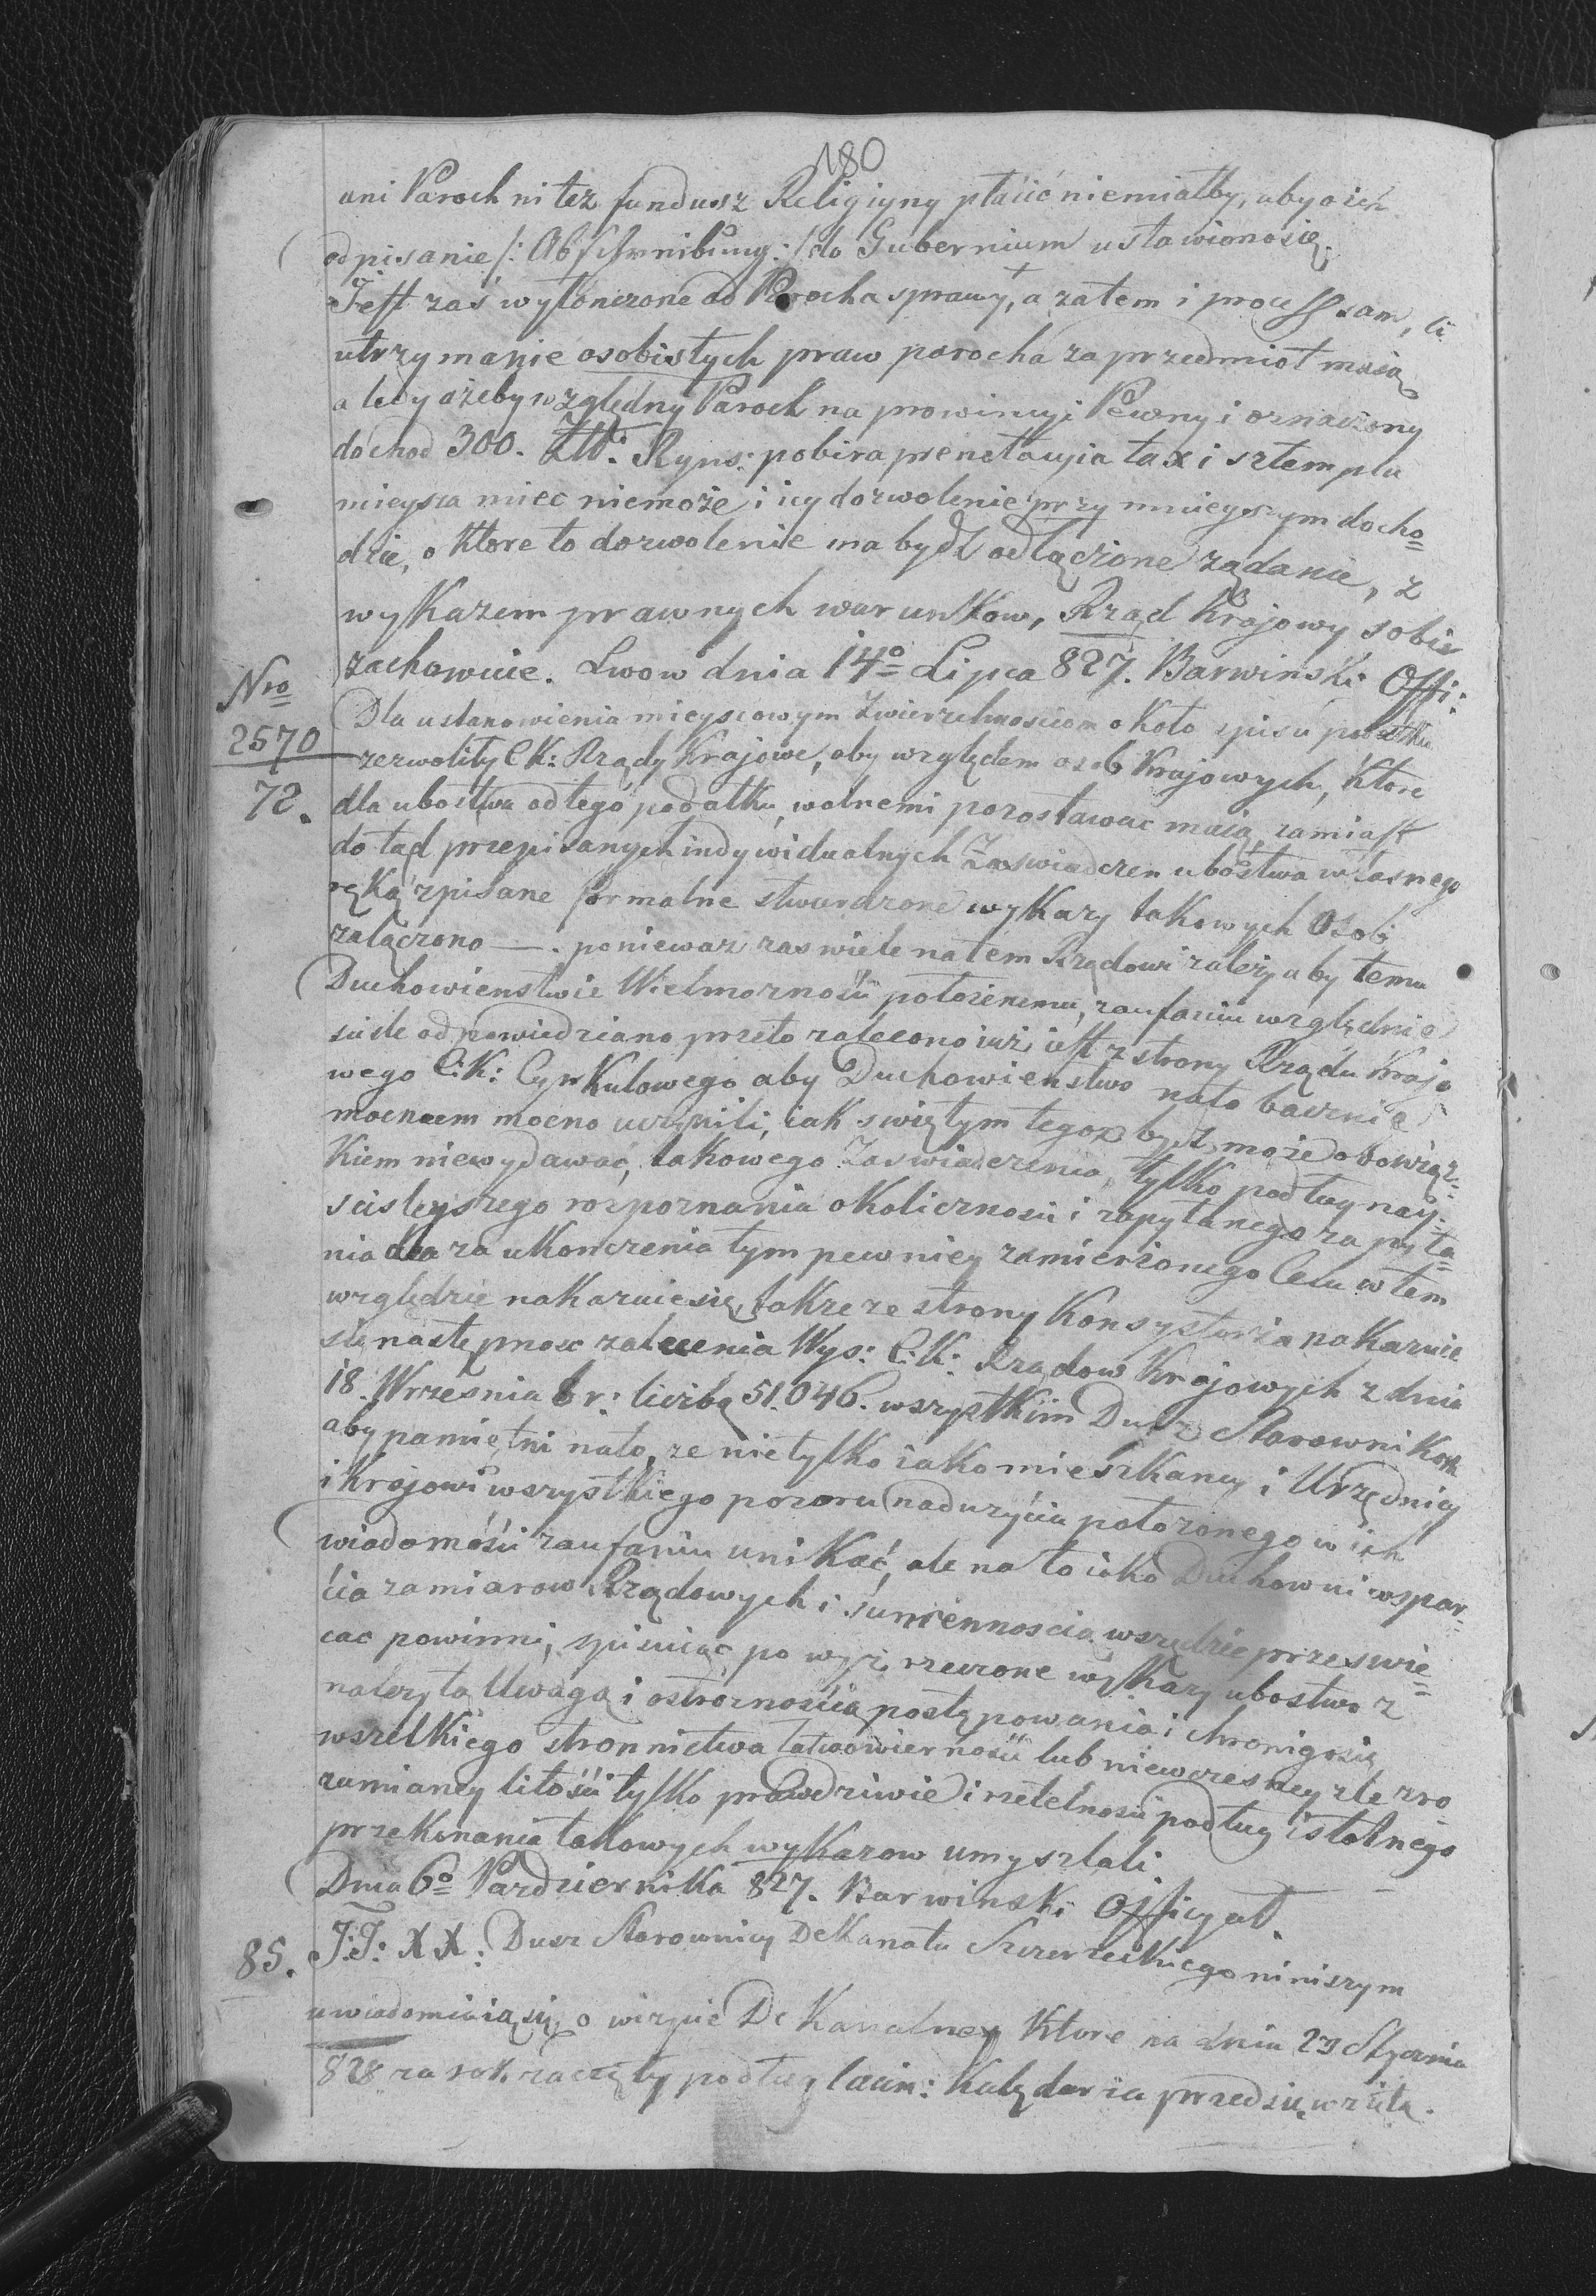 180
ani Paroch ni też fundusz Religiyny płacić niemiałby, aby o ich
odpisanie /: Abschreibung :/ do Gubernium ustawionosię.
Jest zaś wyłonczone od Parocha sprawy, a zatem i process sam, li
utrzymanie osobistych praw parocha za przedmiot maią
a tedy ażeby względny Paroch na prowincyi Pewny i oznaczony
dochod 300. ZłR: Ryns: pobira prenotacyia tax i sztemplu
mieysca miec niemoże i iey dozwolenie przy mnieyszym docho=
dzie, o Ktore to dozwolenie ma bydź odłączone żądanie, z
wyKazem prawnych warunKow, Rząd Krajowy sobie
zachowuie. Lwow dnia 14º Lipca 827. Barwinski Offi:
Nro 2570
72.
Dla ustanowienia mieyscowym Zwierzchnosciom około spisu podatku
zezwoliły CK: Rządy Krajowe, aby względem osob Krajowych, Ktore
dla ubostwa od tego podatku, wolnemi pozostawac maią zamiast
do tąd przepisanych indywidualnych Zaswiadczen ubostwa własnego
ręką zpisane formalne stwerdzone wyKazy takowych Osob
załączono —. poniewaz zas wiele natem Rządowi zależy aby temu
Duchowienstwie Wielmożnosci położenemu, zaufaniu względnie
scisle odpowiedziano przeto zalecono iuż iest z strony Rządu Krajo
wego C:K: CyrKulowego aby Duchowienstwo nato bacznie
mocnem mocno uczynili, iak swiętym tegoz bydź może obowiąz=
Kiem niewydawać, takowego Zaswiadczenia, tylKo podług nay=
scisleyszego rozpoznania oKolicznosci i zapytanego za pyta=
nia dla za uKonczenia tym pewniey zamierzonego Celu w tem
względzie nakazuiesię, takze ze strony Konsystorza naKazuie
się następnosc zalecenia Wys: C:K: Rządow Krajowych z dnia
18. Wrzesnia b r: liczbą 51.046. wszystKiim Dusz StarowniKom
aby pamiętni nato, ze nie tylKo iako mieszKancy i Urzędnicy
i Krajowi wszystKiego pozoru nadużyciu położonego w ich
wiadomości zaufaniu uniKać, ale na to iako Duchowni wspar=
cia zamiarow Rządowych i sumiennoscią wszędzie przeswie=
cac powinni, spisuiąc po wyż rzeczone wyKazy ubostwa z
należytą Uwagą i ostrożnością postępowania i chronigosię
wszelKiego stronnictwa łatwowiernosci lub niewczesney zle zro
zumianey litości tylKo prawdziwie i rzetelnosci podług istotnego
przeKonania takowych wyKazow umyszlali
Dnia 6º PazdzierniKa 827. Barwinski Officyał.
85.
J:J: XX: Dusz Starownicy DeKanatu SzczerzecKiego niniszym
uwiadomiaią się o wizycie DeKanalney Ktore na dniu 29 Stycznia
828 za roK zaczęty podług łacin: Kalędarza przedsięwzięta.